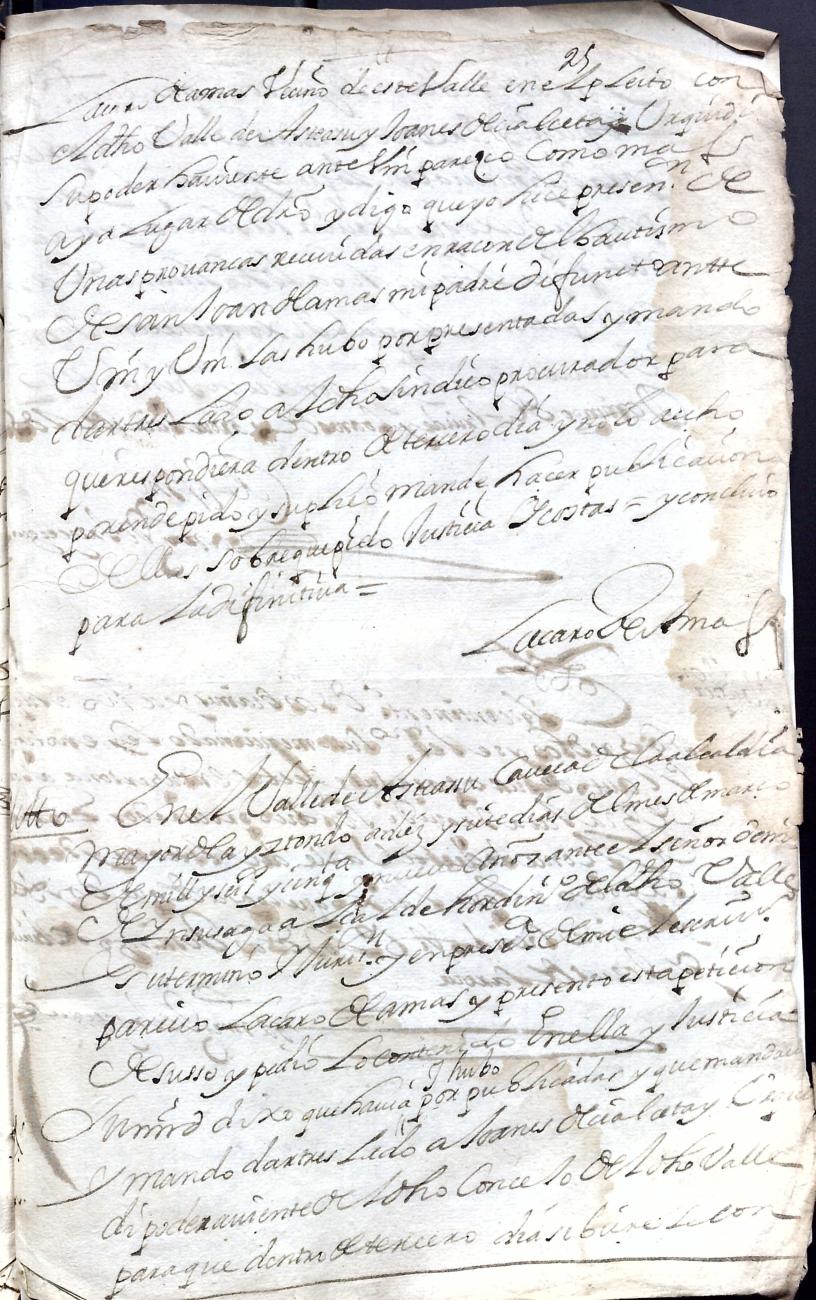 25
Lacaro de amas Vecino de este Valle en el pleito con
el dho Valle de Asteasu y Joanes de Çalaeta y Urquidi
su poder haviente ante Vm parezco Como mas
aya lugar de dro y digo que yo hice presenon de
Unas provancas recividas en racon del bautismo
de san Joan de amas mi padre difunto antte
Vm y Vm las hubo por presentadas y mando
dar tres lado a dho sindico procurador para
que respondiera dentro de tercero dia y no lo a echo
por ende pido y suplico mande hacer publicacion
de ellas sobre que pido Justicia y costas = y concluio
para la difinitiva =
Lacaro de Amas
Auto
En el Valle de Asteasu Caveca de la alcaldia
mayor de ayztondo a diez y siete dias del mes de março
de mill y seis y cinqta y nueve Años ante el señor domi
de Ynsusaga alcalde hordino del dho Valle
su termino y Juriton y en presea de mi el escrivo
parecio Lacaro de amas y presento esta peticion
de susso y pidio lo contenido En ella y Justicia
Su mrd dixo que havia y hubo por publicadas y que mandava
y mando dar tres lado a Joanes de Çalaeta y Urqui
di poder aviente de dho Concejo de dho Valle
para que dentro de tercero dia si biere le con